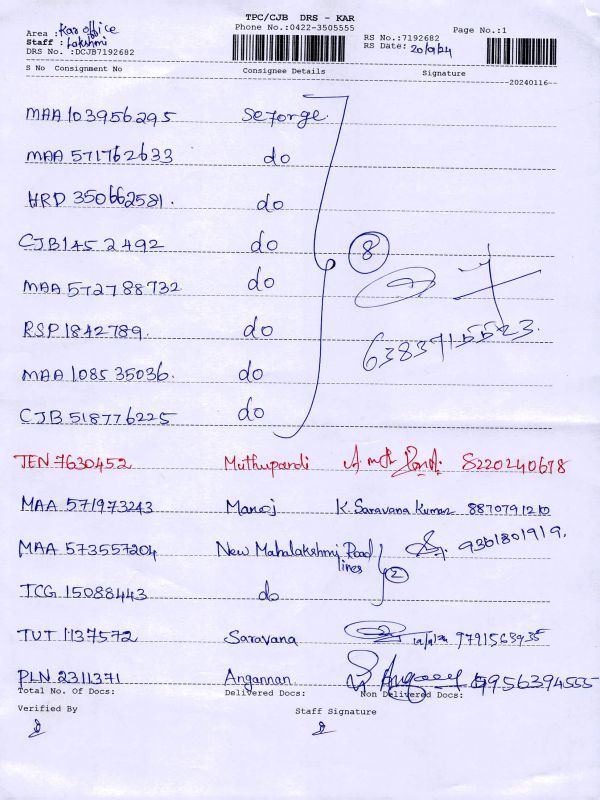 TPC/CJB DRS - KAR
Area : Kar office
Phone No.:0422-3505555
Page No.:1
Staff : Lakshmi
RS No.:7192682
DRS No :DCJB7192682
RS Date: 20/9/24
S No Consignment No Consignee Details Signature
20240116
MAA 103956295 Seforge.
MAA 571762633 do
HRD 350662581. do
CJB 145 2492 do
8
MAA 572788732 do
RSP 1842789. do
6383715523.
MAA 1085 35036. do
CJB 518776225 do
TEN 7630452 Muthupandi 8220240678
MAA 571973243 Manoj K. Saravana Kumar 8870791210
MAA 573557204 New Mahalakshmi Road lines 9361801919.
2
TCG 15088443 do
TUT 1137572 Saravana 9791563935
PLN 2311371 Angannan 9956394555
Total No. Of Docs: Delivered Docs: Non Delivered Docs:
Verified By Staff Signature